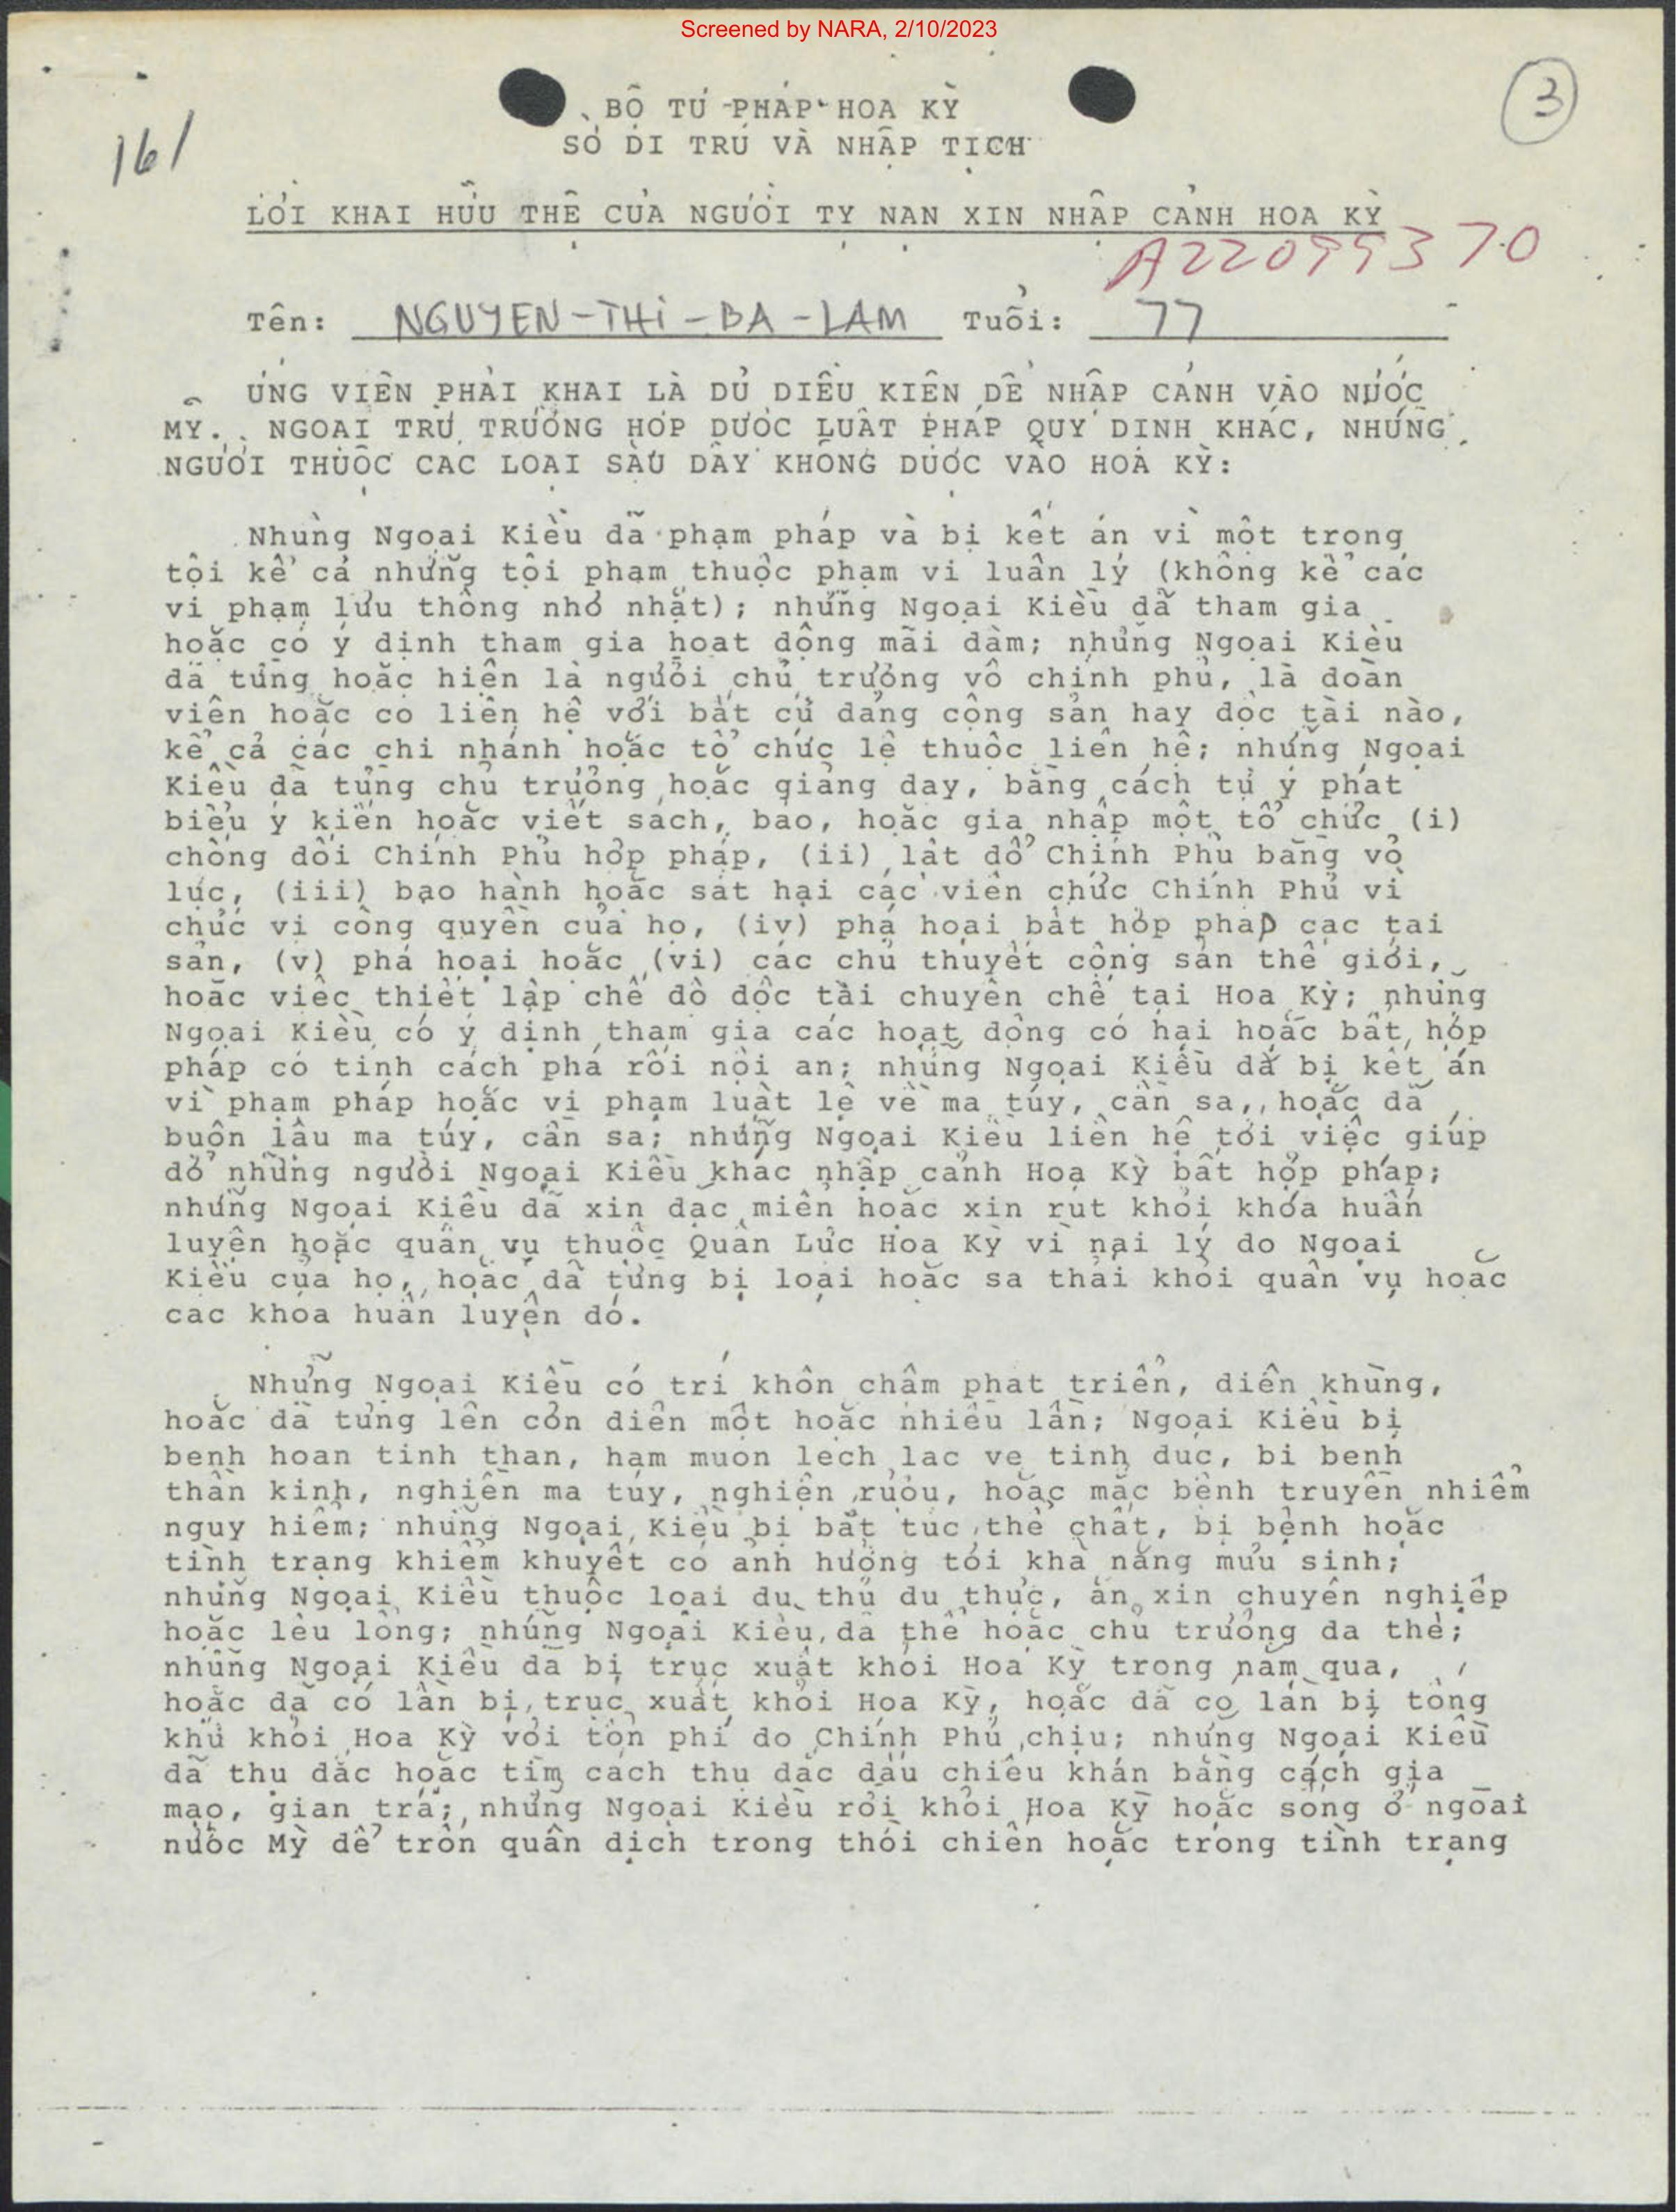 Screened by NARA, 2/10/2023
3
161
BỘ TƯ PHÁP HOA KỲ
SỞ DI TRÚ VÀ NHẬP TỊCH
LỜI KHAI HỮU THỆ CỦA NGƯỜI TỴ NẠN XIN NHẬP CẢNH HOA KỲ
A22099370
Tên: NGUYEN-THI-BA-LAM Tuổi: 77
ỨNG VIÊN PHẢI KHAI LÀ DỦ DIỀU KIỆN DỂ NHẬP CẢNH VÀO NƯỚC
MỸ. NGOẠI TRỪ TRƯỜNG HỢP DƯỢC LUẬT PHÁP QUY DỊNH KHÁC, NHỮNG
NGƯỜI THUỘC CÁC LOẠI SAU DÂY KHÔNG DƯỢC VÀO HOA KỲ:
Những Ngoại Kiều dã phạm pháp và bị kết án vì một trong
tội kể cả những tội phạm thuộc phạm vi luân lý (không kể các
vi phạm lưu thông nhỏ nhặt); những Ngoại Kiều dã tham gia
hoặc có ý dịnh tham gia hoạt dộng mãi dâm; những Ngoại Kiều
dã từng hoặc hiện là người chủ trương vô chính phủ, là doàn
viên hoặc có liên hệ với bất cứ dảng cộng sản hay dộc tài nào,
kể cả các chi nhánh hoặc tổ chức lệ thuộc liên hệ; những Ngoại
Kiều dã từng chủ trương hoặc giảng dạy, bằng cách tự ý phát
biểu ý kiến hoặc viết sách, báo, hoặc gia nhập một tổ chức (i)
chống dối Chính Phủ hợp pháp, (ii) lật dổ Chính Phủ bằng võ
lực, (iii) bạo hành hoặc sát hại các viên chức Chính Phủ vì
chức vị công quyền của họ, (iv) phá hoại bất hợp pháp các tài
sản, (v) phá hoại hoặc (vi) các chủ thuyết cộng sản thế giới,
hoặc việc thiết lập chế dộ dộc tài chuyên chế tại Hoa Kỳ; những
Ngoại Kiều có ý dịnh tham gia các hoạt dộng có hại hoặc bất hợp
pháp có tính cách phá rối nội an; những Ngoại Kiều dã bị kết án
vì phạm pháp hoặc vi phạm luật lệ về ma túy, cần sa, hoặc dã
buôn lậu ma túy, cần sa; những Ngoại Kiều liên hệ tới việc giúp
dỡ những người Ngoại Kiều khác nhập cảnh Hoa Kỳ bất hợp pháp;
những Ngoại Kiều dã xin dặc miễn hoặc xin rút khỏi khóa huấn
luyện hoặc quân vụ thuộc Quân Lực Hoa Kỳ vì nại lý do Ngoại
Kiều của họ, hoặc dã từng bị loại hoặc sa thải khỏi quân vụ hoặc
các khóa huấn luyện dó.
Những Ngoại Kiều có trí khôn chậm phát triển, diên khùng,
hoặc dã từng lên cơn diên một hoặc nhiều lần; Ngoại Kiều bị
benh hoan tinh than, ham muon lech lac ve tinh duc, bi benh
thần kinh, nghiện ma túy, nghiện rượu, hoặc mắc bệnh truyền nhiễm
nguy hiểm; những Ngoại Kiều bị bất túc thể chất, bị bệnh hoặc
tình trạng khiếm khuyết có ảnh hưởng tới khả năng mưu sinh;
những Ngoại Kiều thuộc loại du thủ du thực, ăn xin chuyên nghiệp
hoặc lêu lổng; những Ngoại Kiều da thê hoặc chủ trương da thê;
những Ngoại Kiều dã bị trục xuất khỏi Hoa Kỳ trong năm qua,
hoặc dã có lần bị trục xuất khỏi Hoa Kỳ, hoặc dã có lần bị tống
khứ khỏi Hoa Kỳ với tổn phí do Chính Phủ chịu; những Ngoại Kiều
dã thu dắc hoặc tìm cách thu dắc dấu chiếu khán bằng cách giả
mạo, gian trá; những Ngoại Kiều rời khỏi Hoa Kỳ hoặc sống ở ngoài
nước Mỹ dể trốn quân dịch trong thời chiến hoặc trong tình trạng